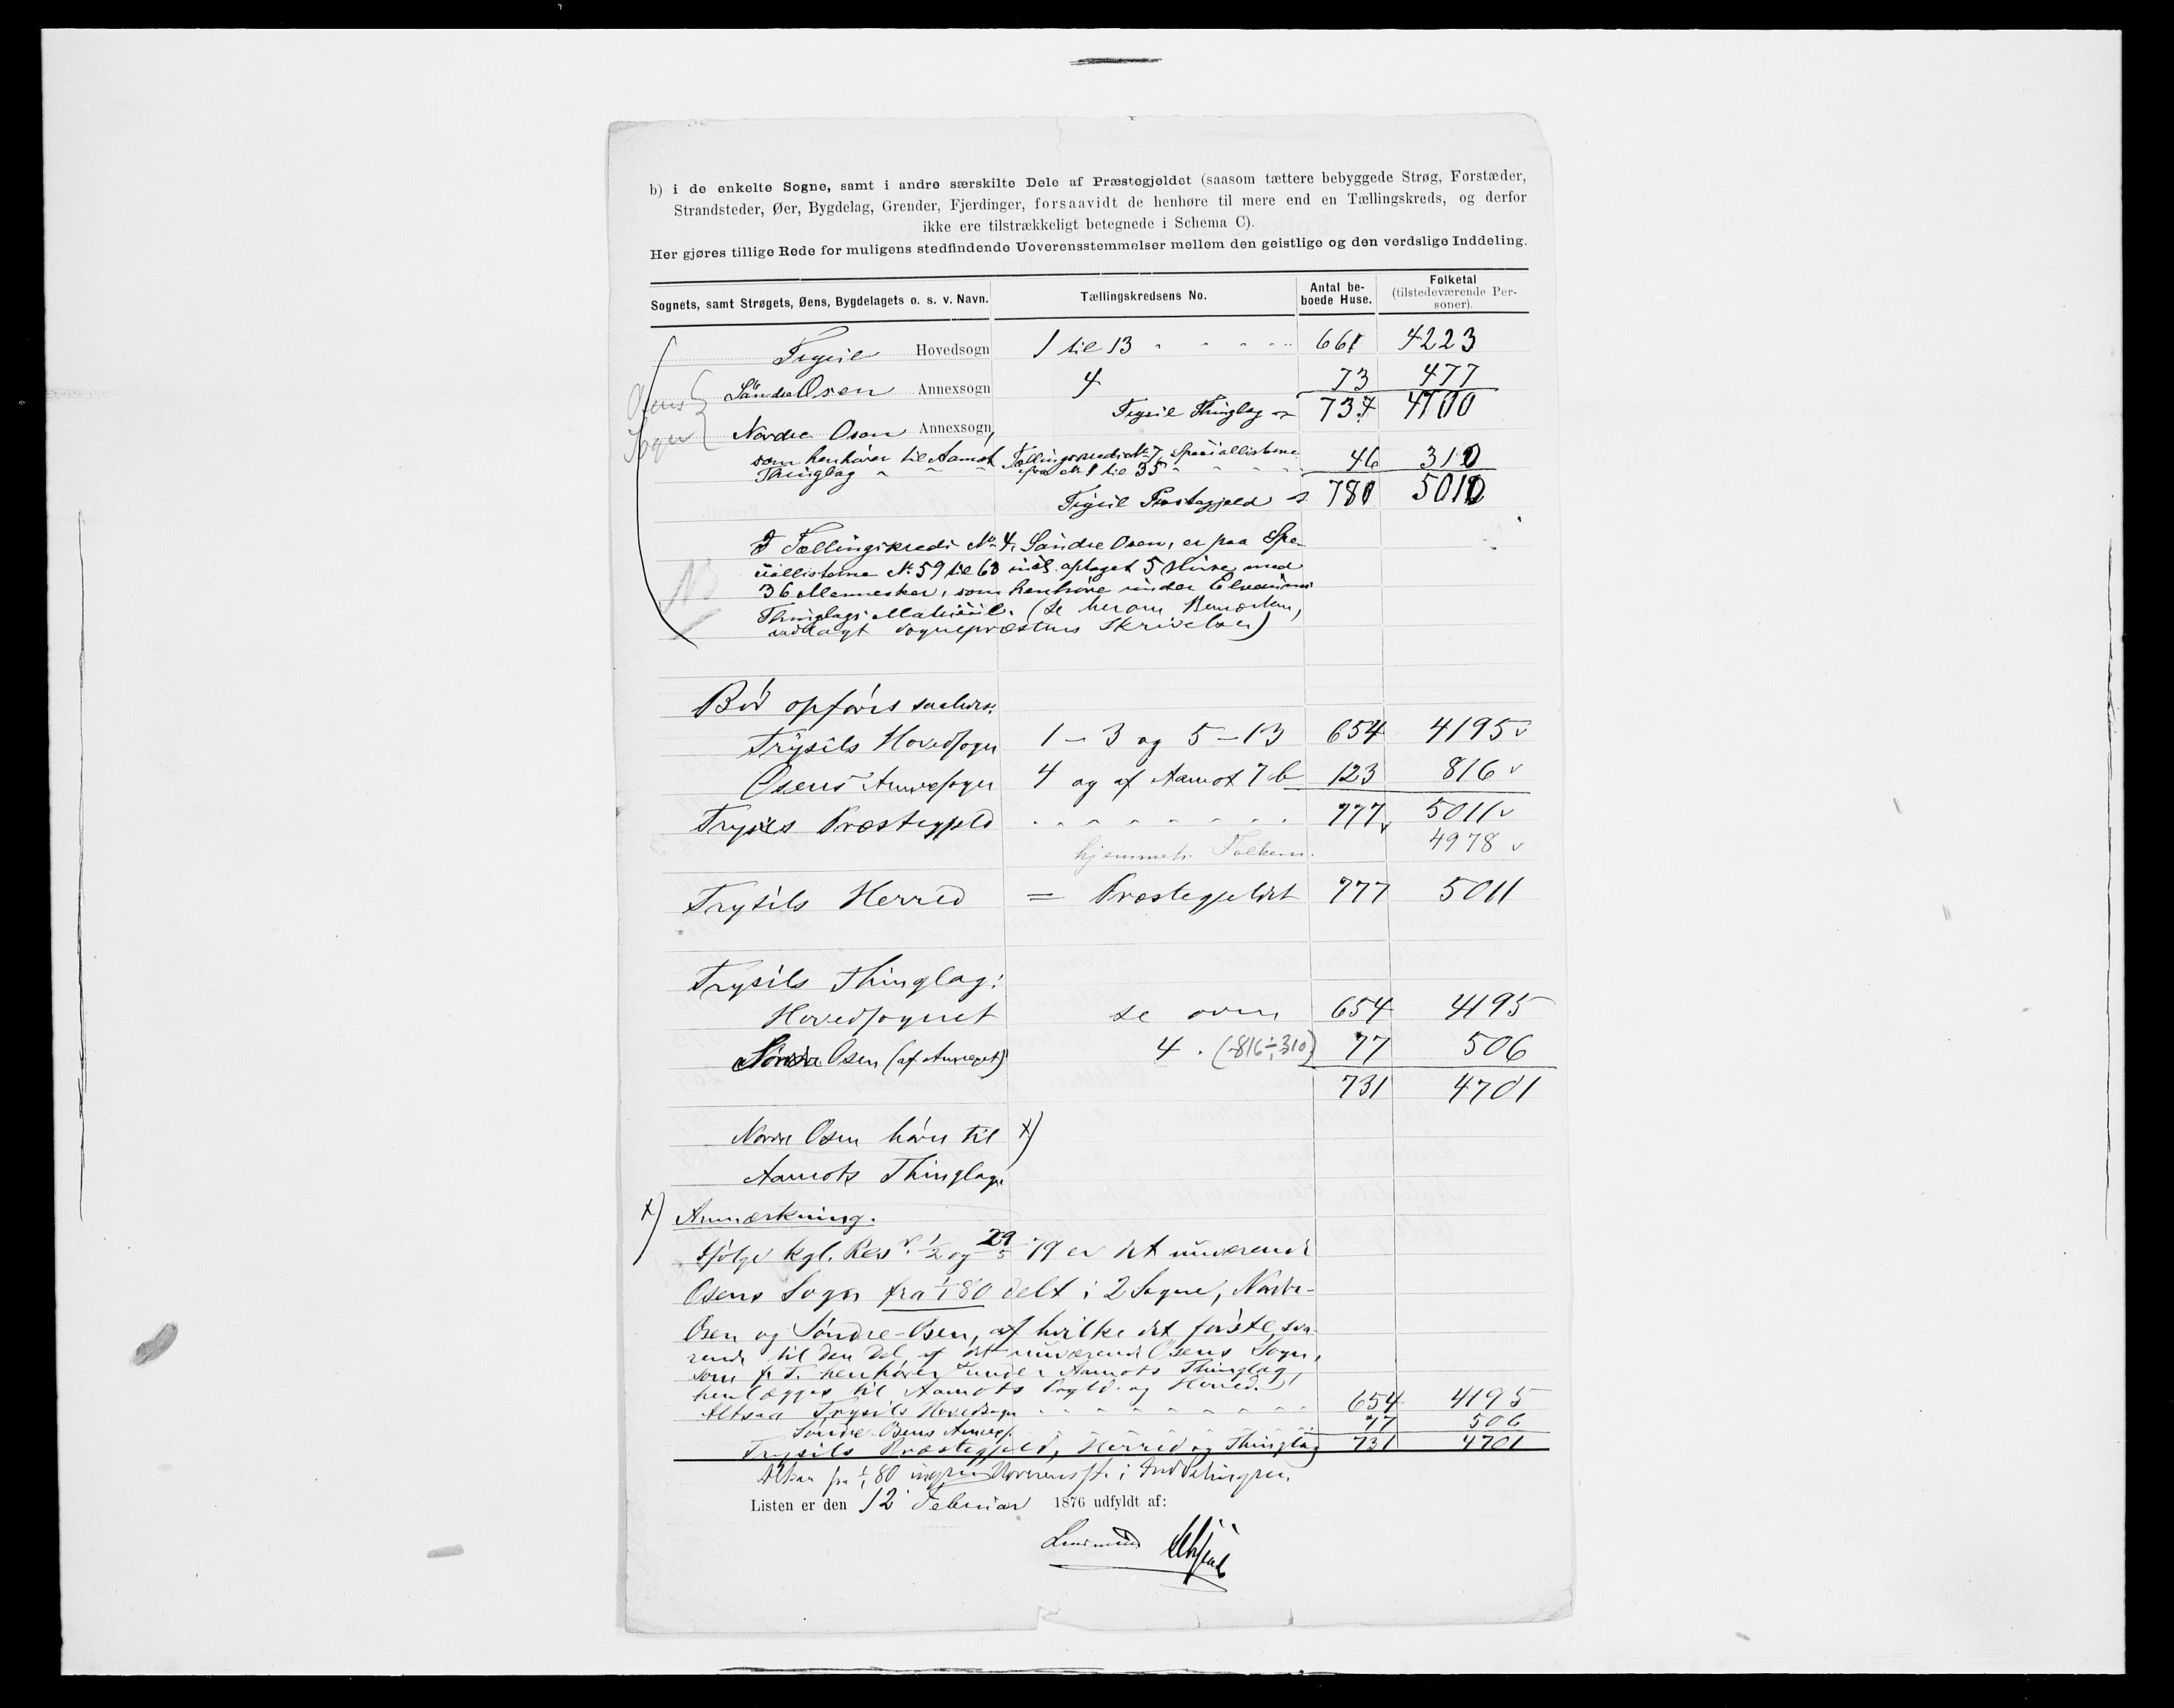 b) i de enkelte Sogne, samt i andre særskilte Dele af Præstegjeldet (saasom tættere bebyggede Strøg, Forstæder,
Strandsteder, Øer, Bygdelag, Grender, Fjerdinger, forsaavidt de henhøre til mere end en Tællingskreds, og derfor
ikke ere tilstrækkeligt betegnede i Schema C).
Her gjøres tillige Rede for muligens stedfindende Uoverensstemmelser mellem den geistlige og den verdslige Inddeling.
Sognets, samt Strøgets, Øens, Bygdelagets o. s. v. Navn. Tællingskredsens No. Antal be-boede Huse. Folketal (tilstedeværende Per-soner).
Trysil Hovedsogn 1 til 13 661 4223
Søndre Osen Annexsogn 4 73 477
Trysil Thinglag 734 4700
Osens Sogn
Nordre Osen Annexsogn,
som henhører til Aamot Tællingskreds No 7, Speciallisterne
Thinglag fra No 1 til 35 46 310
Trysil Præstegjeld 780 5010
I Tællingskreds No 4, Søndre Osen, er paa Spe-
ciallisterne No 59 til 63 incl. optaget 5 Huse med
36 Mennesker, som henhøre under Elverums
Thinglags Matrikul. (Se herom Bemærkn,
vedlagt Sognepræstens Skrivelse)
NB
Bør opføres saaledes:
Trysils Hovedsogn 1 – 3 og 5 – 13 654 4195 v
Osens Annexsogn 4 og af Aamot 7 b 123 816 v
Trysils Præstegjeld 777 v 5011 v
hjemmeh. Folkem. 4978 v
Trysils Herred = Præstegjeldet 777 5011
Trysils Thinglag:
Hovedsognet se oven 654 4195
Søndre Osen (af Annexet) 4 . (816 ÷ 310) 77 506
731 4701
Nordre Osen hører til x)
Aamots Thinglag.
x) Anmærkning.
Ifølge kgl. Res. v. 1/2 og 29/5 79 er det nuværende
Osens Sogn fra 1/1 80 delt i 2 Sogne, Nordre-
Osen og Søndre-Osen, af hvilke det første, sva-
rende til den Del af det nuværende Osens Sogn,
som p. T. henhører under Aamots Thinglag,
henlægges til Aamots Prgld. og Herred.
Altsaa Trysils Hovedsogn 654 4195
Søndre Osens Annex. 77 506
Trysils Præstegjeld, Herred og Thinglag 731 4701
Altsaa fra 1/1 80 ingen Uoverensst. i Inddelingen.
Listen er den 12 Februar 1876 udfyldt af:
Lensmand